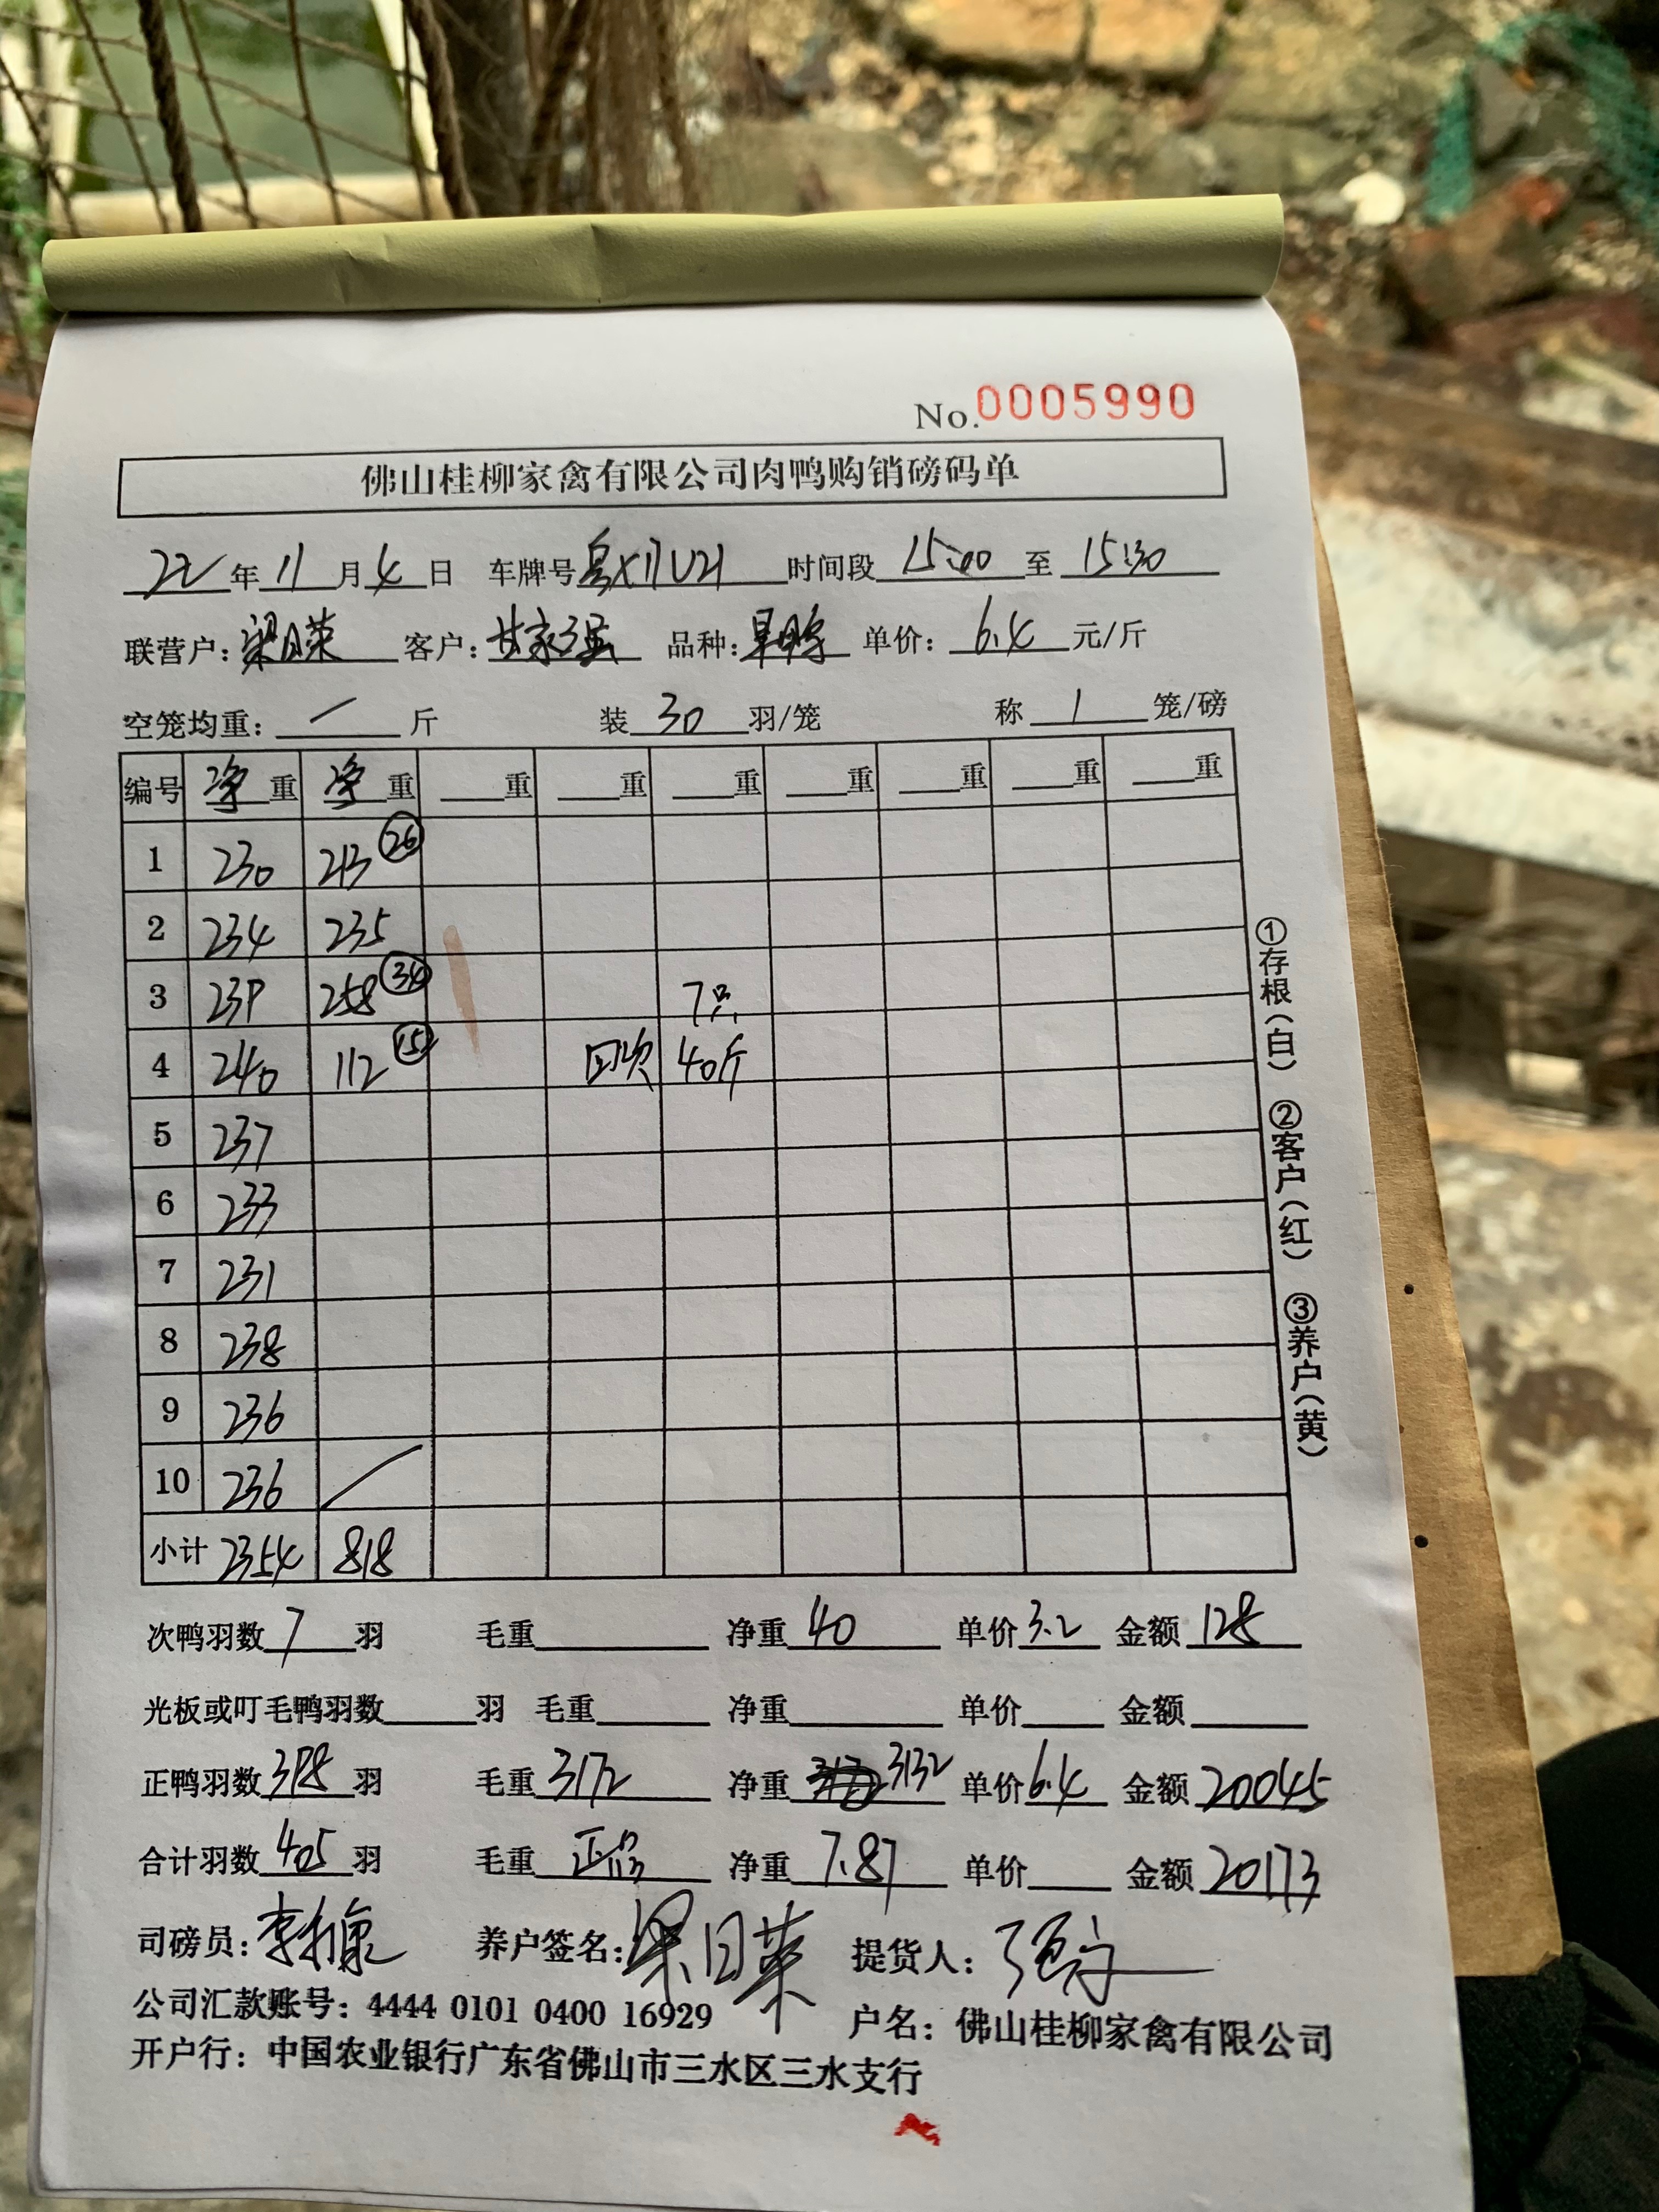 No.0005990
佛山桂柳家禽有限公司肉鸭购销磅码单
22年11月4日 车牌号 时间段15:00至15:30
联营户:梁日荣 客户:甘家强 品种: 单价:6.4元/斤
空笼均重:/斤 装30羽/笼 称1笼/磅
编号 净重 净重 重 重 重 重 重 重 重
1 230 213 26
2 234 235
3 239 258 34 7只
4 240 112 15 回次 40斤
5 237
6 233
7 231
8 238
9 236
10 236 /
小计 2354 818
次鸭羽数7羽 毛重 净重40 单价3.2 金额128
光板或叮毛鸭羽数 羽 毛重 净重 单价 金额
正鸭羽数398羽 毛重3172 净重3132 单价6.4 金额20045
合计羽数405羽 毛重正品 净重7.87 单价 金额20173
司磅员: 养户签名:梁日荣 提货人:
公司汇款账号:4444 0101 0400 16929 户名:佛山桂柳家禽有限公司
开户行:中国农业银行广东省佛山市三水区三水支行
①存根(白) ②客户(红) ③养户(黄)